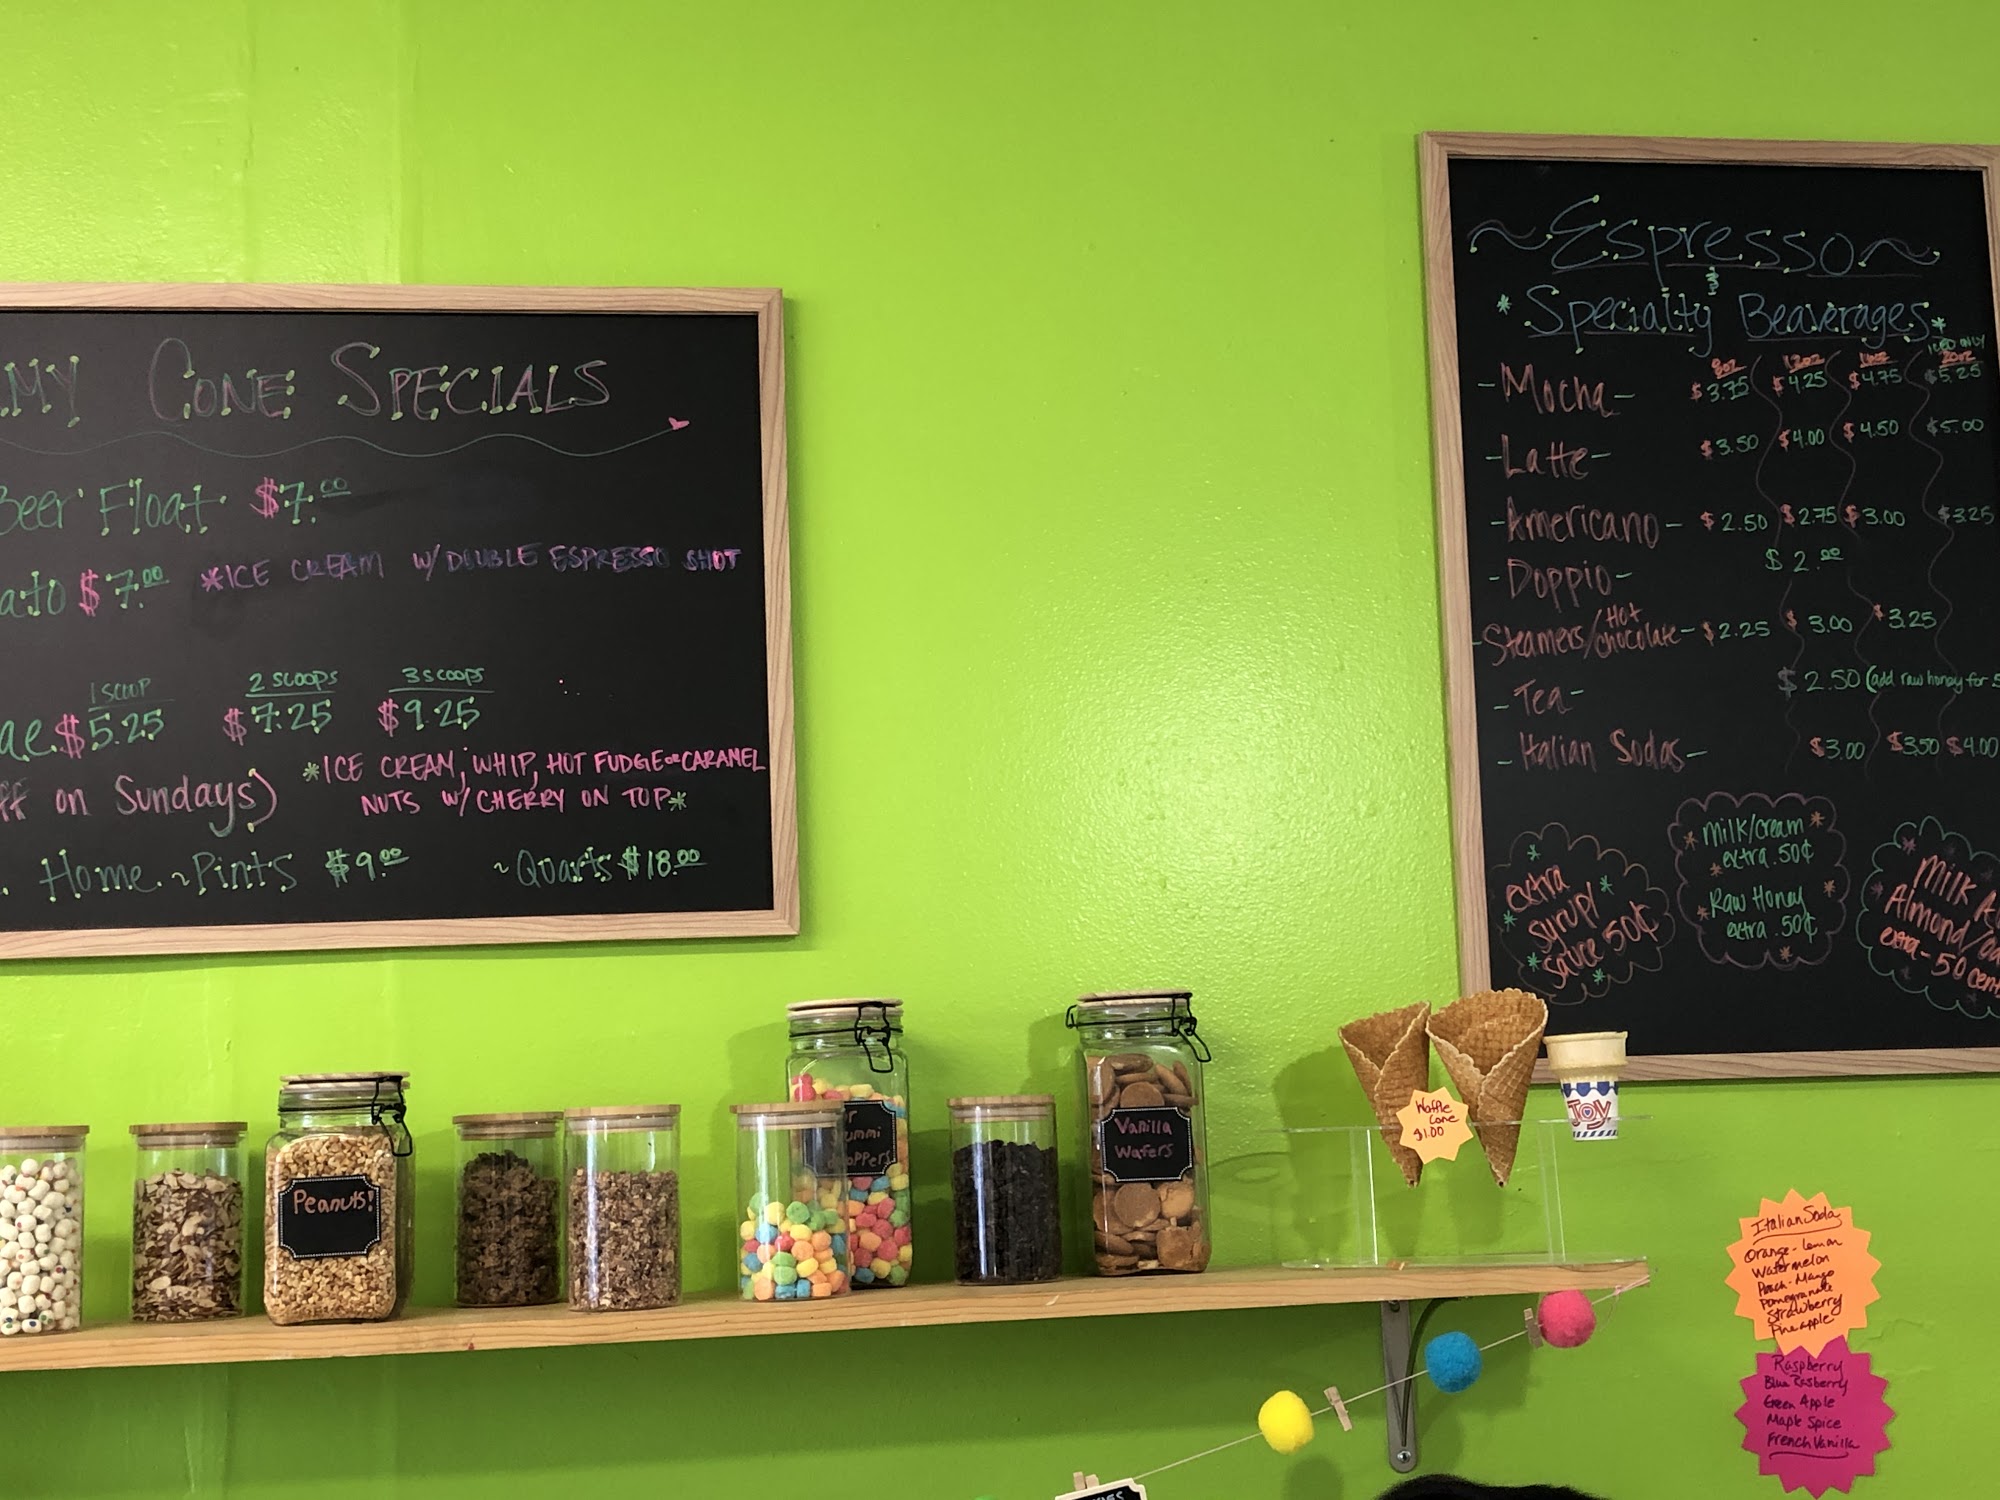 MY CONE SPECIALS
Beer Float $7.00
ato $7.00 *ICE CREAM W/DOUBLE ESPRESSO SHOT
1 SCOOP 2 SCOOPS 3 SCOOPS
ae $5.25 $7.25 $9.25
ff on Sundays) *ICE CREAM, WHIP, HOT FUDGE OR CARAMEL
NUTS W/CHERRY ON TOP*
Home ~Pints $9.00 ~Quarts $18.00
~Espresso~
&
*Specialty Beaverages*
8oz 12oz 16oz ICED ONLY 20oz
-Mocha- $3.75 $4.25 $4.75 $5.25
-Latte- $3.50 $4.00 $4.50 $5.00
-Americano- $2.50 $2.75 $3.00 $3.25
-Doppio- $2.00
-Steamers/Hot chocolate- $2.25 $3.00 $3.25
-Tea- $2.50 (add raw honey for .5
-Italian Sodas- $3.00 $3.50 $4.00
extra
syrup/
sauce 50¢
Milk/cream
extra .50¢
Raw Honey
extra .50¢
Milk
Almond/
extra-50 cent
Peanuts!
Vanilla
Wafers
Waffle
Cone
$1.00
JOY
Italian Soda
Orange-Lemon
Watermelon
Peach-Mango
Pomegranate
Strawberry
Pineapple
Raspberry
Blue Rasberry
Green Apple
Maple Spice
French Vanilla